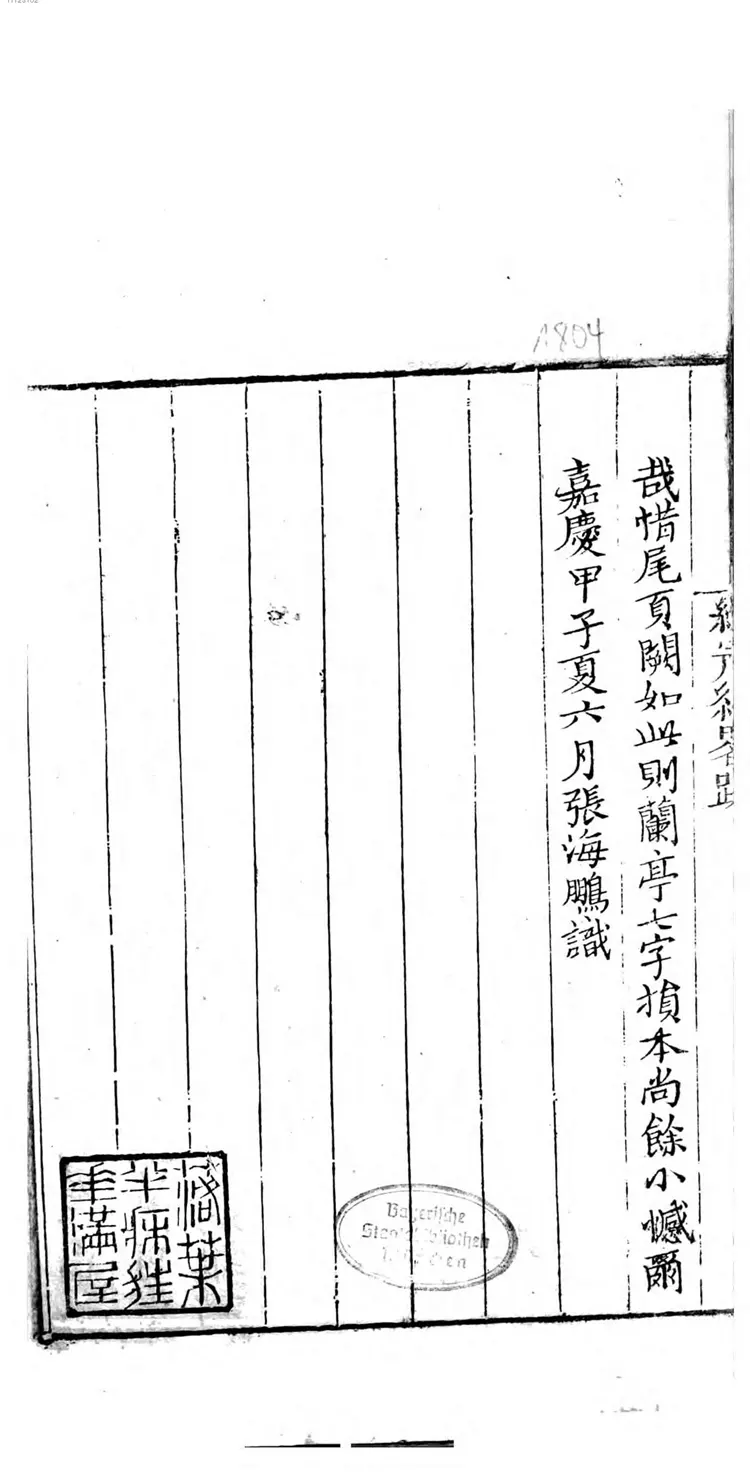 1804
哉惜尾頁闕如此則蘭亭七字損本尚餘小憾爾
嘉慶甲子夏六月張海鵬識
落葉
半牀狂
滿屋
Bayerische
Staatsbibliothek
München